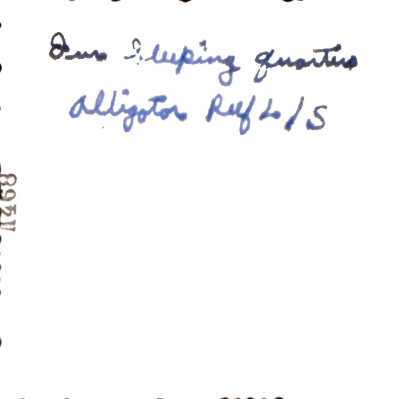 Our Sleeping quarters
Alligator Reef L/S